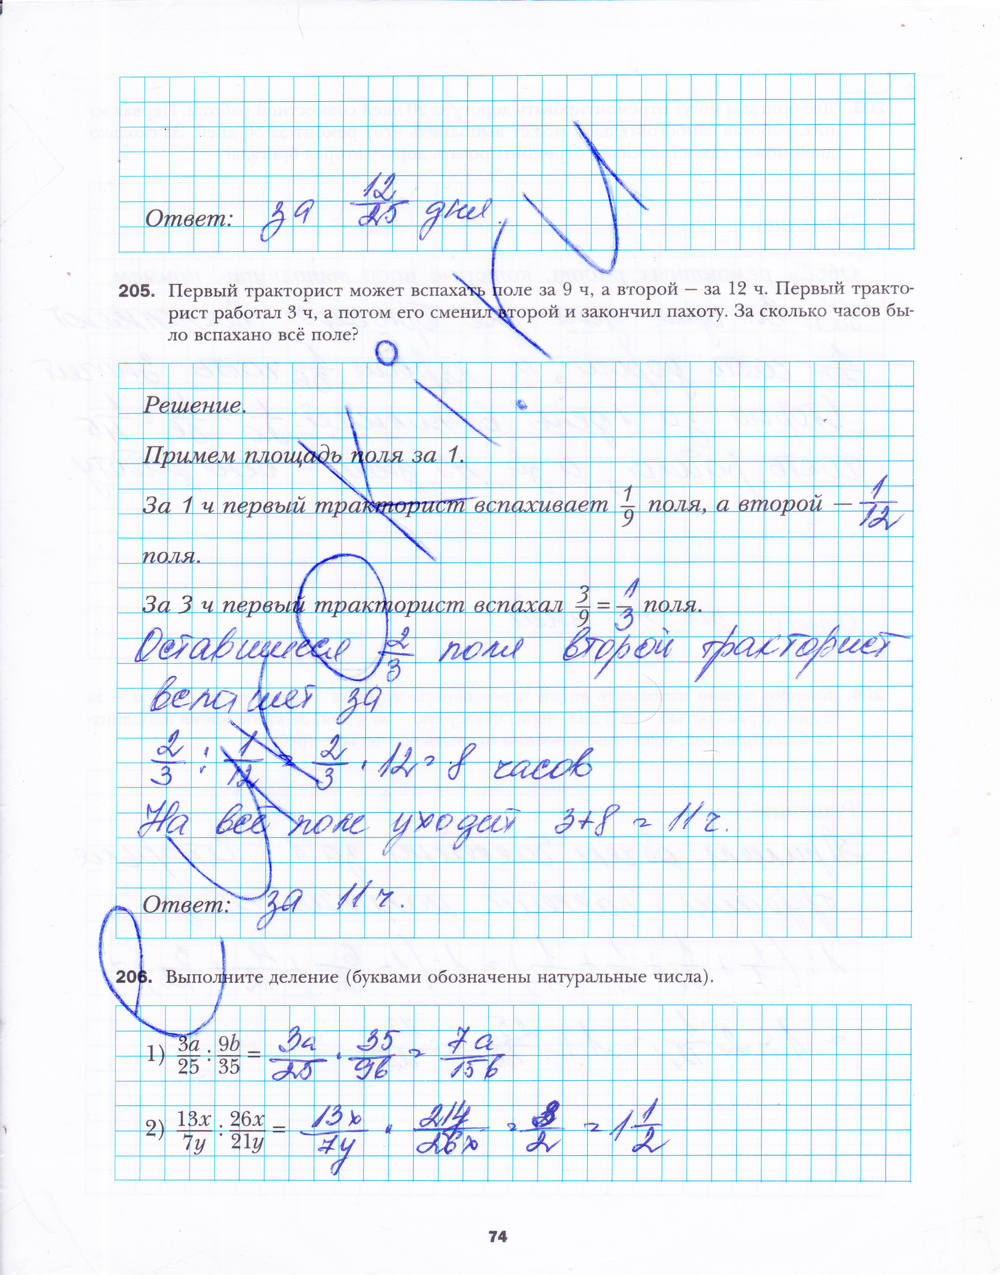 Ответ: за 12/25 дня.
205. Первый тракторист может вспахать поле за 9 ч, а второй — за 12 ч. Первый тракто-
рист работал 3 ч, а потом его сменил второй и закончил пахоту. За сколько часов бы-
ло вспахано всё поле?
Решение.
Примем площадь поля за 1.
За 1 ч первый тракторист вспахивает 1/9 поля, а второй — 1/12
поля.
За 3 ч первый тракторист вспахал 3/9 = 1/3 поля.
Оставшиеся 2/3 поля второй тракторист
вспашет за
2/3 : 1/12 = 2/3 · 12 = 8 часов
На всё поле уходит 3+8 = 11 ч.
Ответ: за 11 ч.
206. Выполните деление (буквами обозначены натуральные числа).
1) 3a/25 : 9b/35 = 3a/25 · 35/9b = 7a/15b
2) 13x/7y : 26x/21y = 13x/7y · 21y/26x = 3/2 = 1 1/2
74